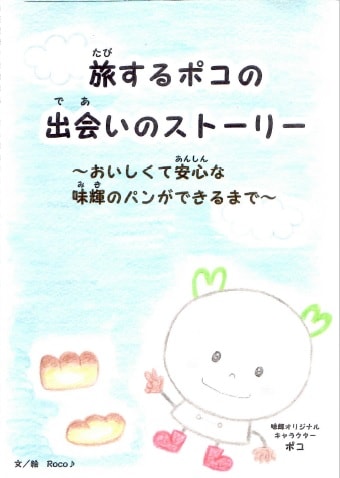 旅するポコの
出会いのストーリー
～おいしくて安心な
味輝のパンができるまで～
味輝オリジナル
キャラクター
ポコ
文／絵 Roco♪